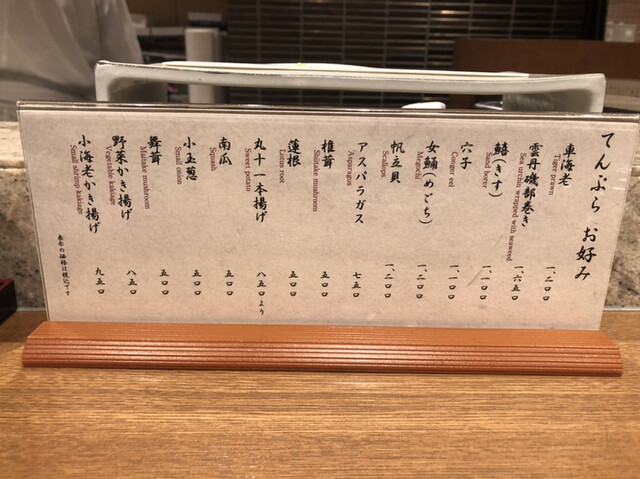 てんぷら お好み
車海老
Tiger prawn
一、二〇〇
雲丹磯部巻き
Sea urchin wrapped with seaweed
一、六五〇
鱚(きす)
Sand borer
一、一〇〇
穴子
Conger eel
一、一〇〇
女鯒(めごち)
Megochi
一、二〇〇
帆立貝
Scallops
一、二〇〇
アスパラガス
Asparagus
七五〇
椎茸
Shiitake mushroom
五〇〇
蓮根
Lotus root
五〇〇
丸十一本揚げ
Sweet potato
八五〇より
南瓜
Squash
五〇〇
小玉葱
Small onion
五〇〇
舞茸
Maitake mushroom
五〇〇
野菜かき揚げ
Vegetable kakiage
八五〇
小海老かき揚げ
Small shrimp kakiage
九五〇
表示の価格は税込です